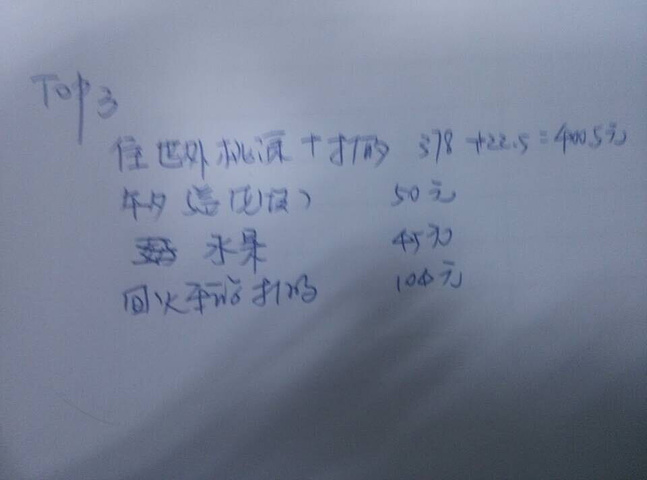 Top 3
住世外桃源+打的 378+22.5=400.5元
午夕(盖 50元
水果 45元
回火车站打的 104元